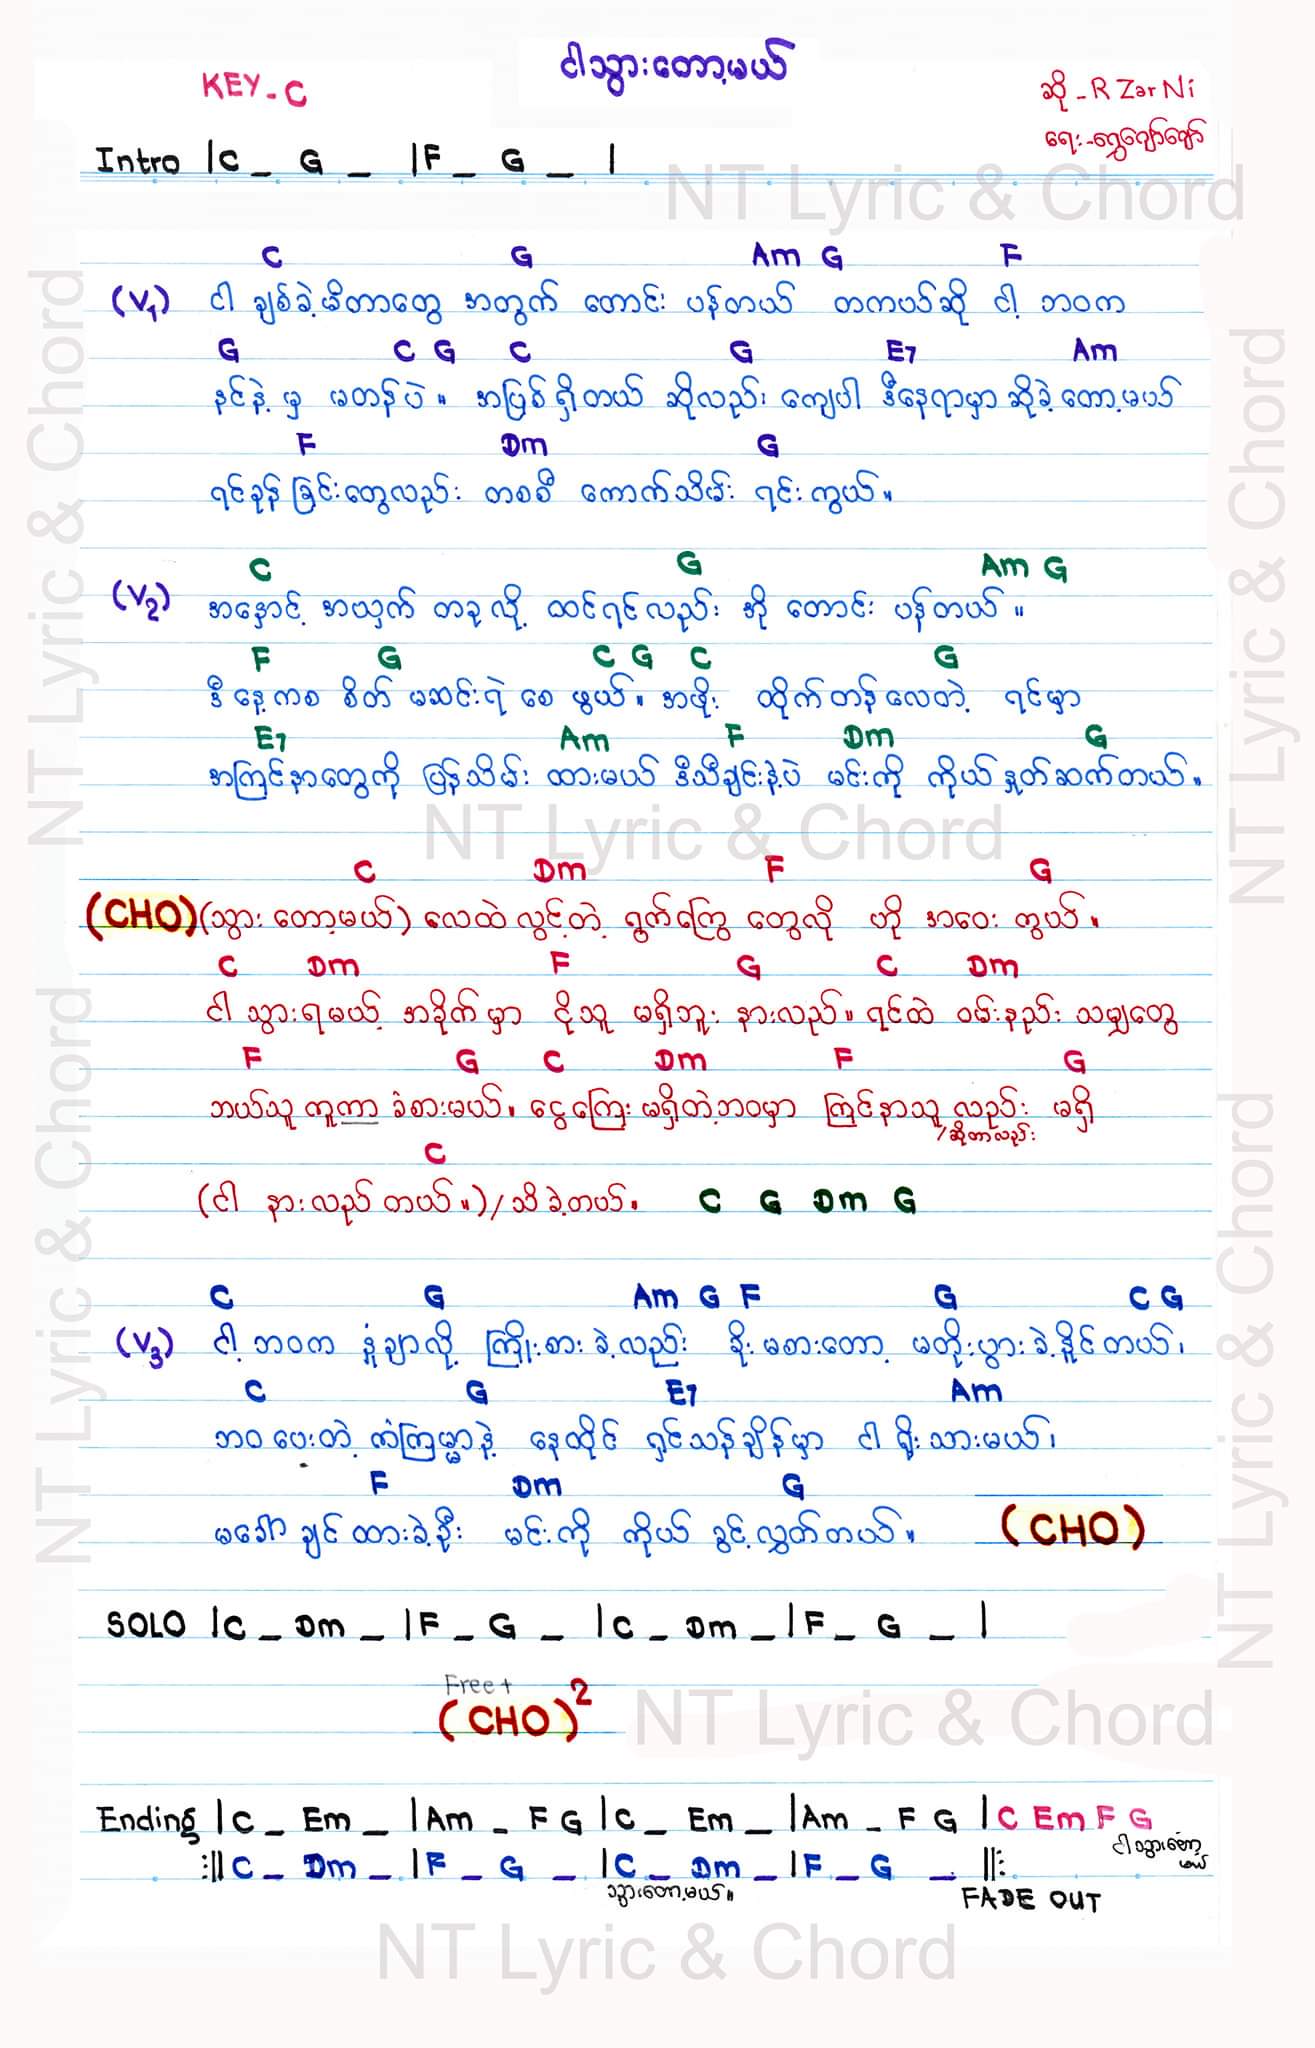 ငါသွားတော့မယ်
KEY - C
ဆို - R Zar Ni
ရေး - ရွှေဂျော်ဂျော်
Intro |C _ G _ |F _ G _ |
NT Lyric & Chord
C G Am G F
(V1) ငါ ချစ်ခဲ့မိတာတွေ အတွက် တောင်း ပန်တယ် တကယ်ဆို ငါ့ ဘဝက
G C G C G E7 Am
နင်နဲ့ မှ မတန်ပဲ ။ အပြစ်ရှိတယ် ဆိုလည်း ကျေပါ ဒီနေရာမှာ ဆိုခဲ့တော့မယ်
F Dm G
ရင်ခုန်ခြင်းတွေလည်း တစစီ ကောက်သိမ်း ရင်းကွယ် ။
C G Am G
(V2) အနှောင့် အယှက် တခုလို့ ထင်ရင်လည်း အို တောင်း ပန်တယ် ။
F G C G C G
ဒီနေ့ကစ စိတ် မဆင်းရဲ စေ ဖွယ် ။ အဖိုး ထိုက်တန်လေတဲ့ ရင်မှာ
E7 Am F Dm G
အကြင်နာတွေကို ပြန်သိမ်း ထားမယ် ဒီသီချင်းနဲ့ပဲ မင်းကို ကိုယ်နှုတ်ဆက်တယ် ။
NT Lyric & Chord
C Dm F G
(CHO) (သွား တော့မယ်) လေထဲ လွင့်တဲ့ ရွက်ကြွေ တွေလို ဟို အဝေး ကွယ် ။
C Dm F G C Dm
ငါ သွားရမယ့် အခိုက်မှာ ငိုသူ မရှိဘူး နားလည် ။ ရင်ထဲ ဝမ်းနည်း သမျှတွေ
F G C Dm F G
ဘယ်သူ ကူကာ ခံစားမယ် ။ ငွေကြေး မရှိတဲ့ဘဝမှာ ကြင်နာသူ လည်း မရှိ
/ဆိုတာလည်း
C
(ငါ နားလည်တယ် ။)/သိခဲ့တယ် ။ C G Dm G
C G Am G F G C G
(V3) ငါ့ ဘဝက နွံချာလို့ ကြိုးစားခဲ့လည်း ခိုးမစားတော့ မတိုးပွားခဲ့နိုင်တယ်၊
C G E7 Am
ဘဝ ပေးတဲ့ ကံကြမ္မာနဲ့ နေထိုင် ရှင်သန်ချိန်မှာ ငါ ရိုးသားမယ်၊
F Dm G
မခေါ်ချင်ထားခဲ့ဦး မင်းကို ကိုယ် ခွင့်လွှတ်တယ် ။ (CHO)
SOLO |C _ Dm _ |F _ G _ |C _ Dm _ |F _ G _ |
Free +
(CHO)2
NT Lyric & Chord
Ending |C _ Em _ |Am _ F G |C _ Em _ |Am _ F G |C Em F G
ငါသွားတော့မယ်
:||C _ Dm _ |F _ G _ |C _ Dm _ |F _ G _ ||:
သွားတော့မယ် ။
FADE OUT
NT Lyric & Chord
NT Lyric & Chord
NT Lyric & Chord
NT Lyric & Chord
NT Lyric & Chord